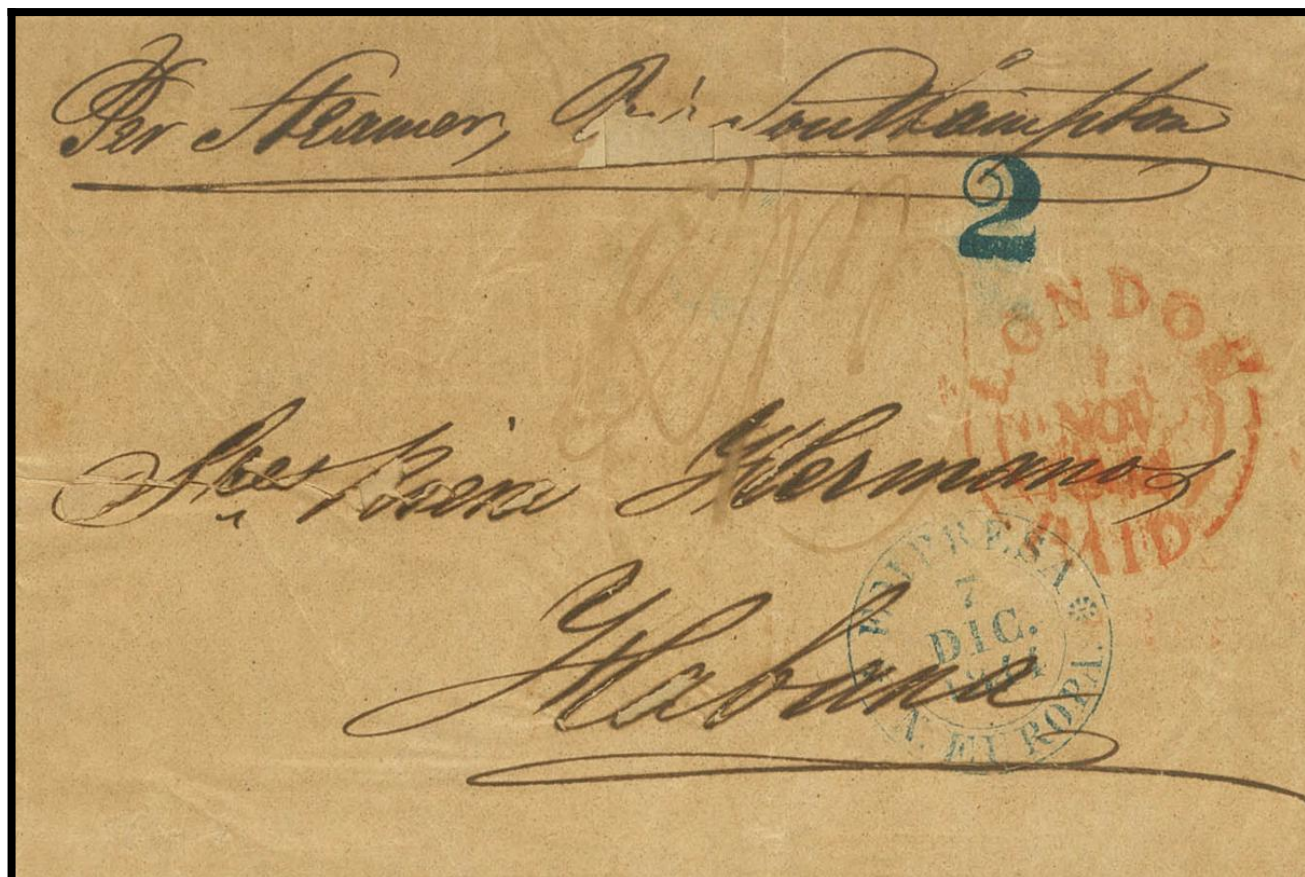 Per Steamer, Via Southampton
2
LONDON
NOV
PAID
Sres Hermanos
EMPRESA
7
DIC.
A. EUROPA.
Habana